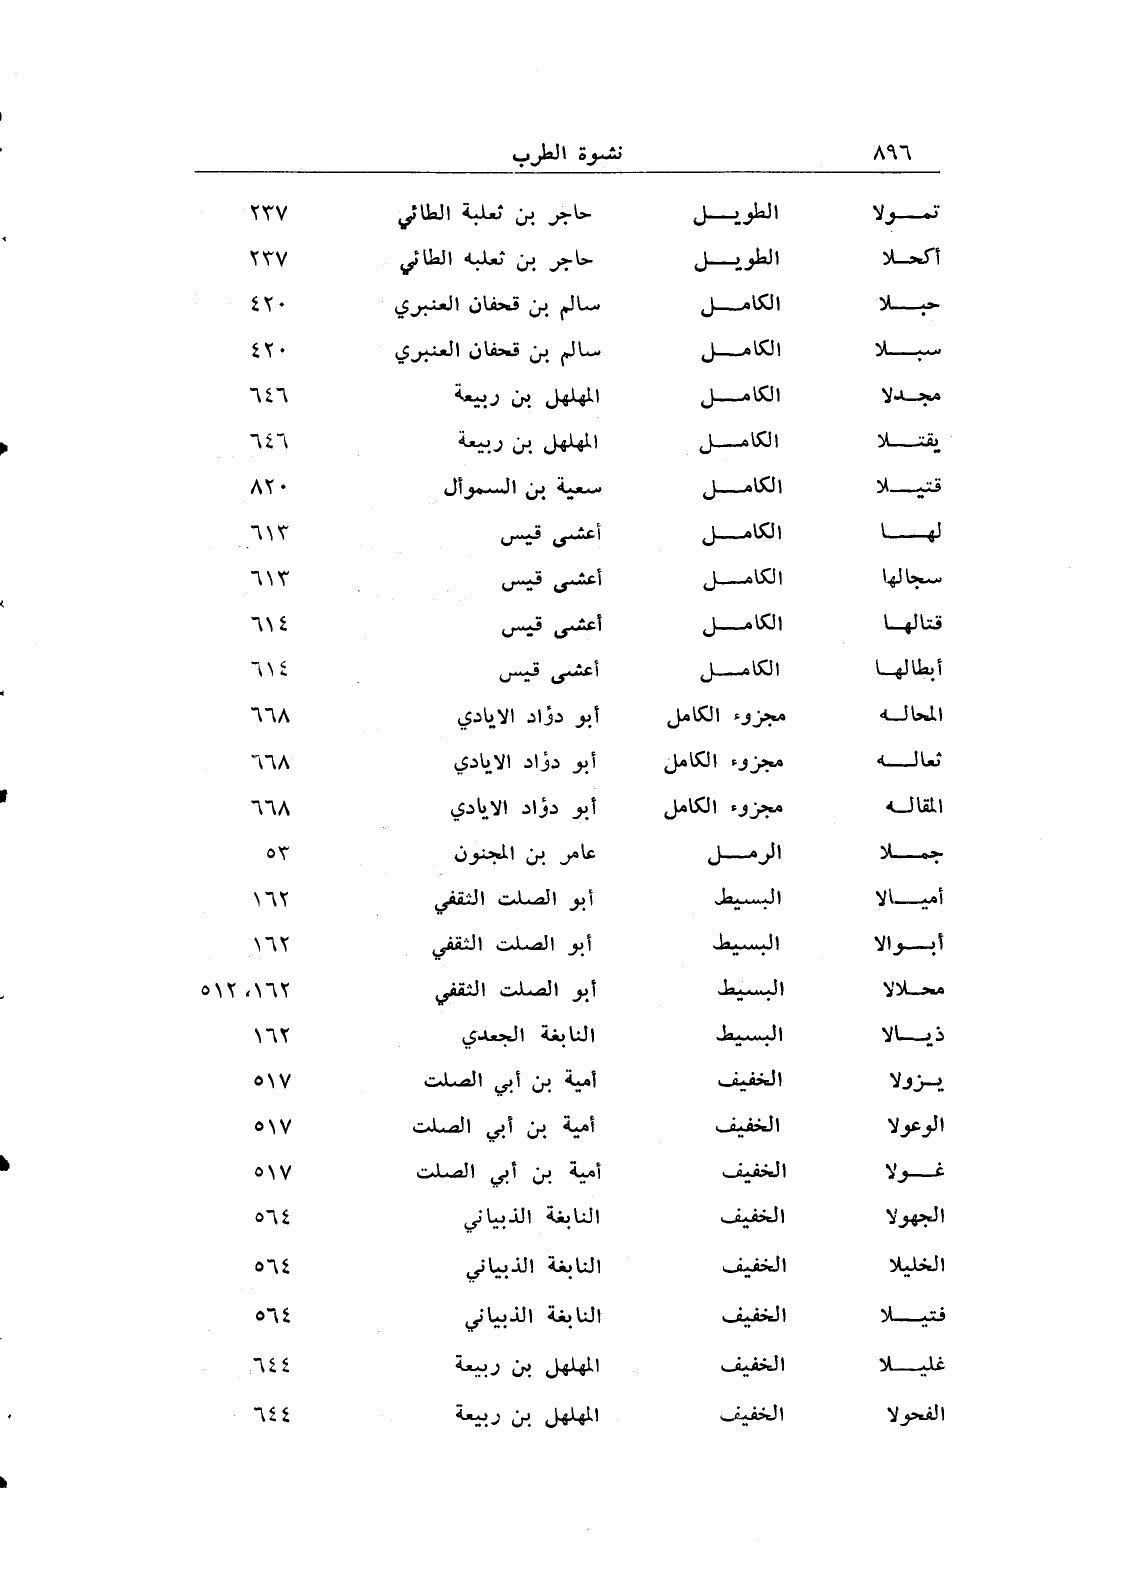 ٨٩٦ نشوة الطرب
تمولا الطويل حاجر بن ثعلبة الطائي ٢٣٧
أكحلا الطويل حاجر بن ثعلبه الطائي ٢٣٧
حبلا الكامل سالم بن قحفان العنبري ٤٢٠
سبلا الكامل سالم بن قحفان العنبري ٤٢٠
مجدلا الكامل المهلهل بن ربيعة ٦٤٦
يقتلا الكامل المهلهل بن ربيعة ٦٤٦
قتيلا الكامل سعية بن السموأل ٨٢٠
لها الكامل أعشى قيس ٦١٣
سجالها الكامل أعشى قيس ٦١٣
قتالها الكامل أعشى قيس ٦١٤
أبطالها الكامل أعشى قيس ٦١٤
المحاله مجزوء الكامل أبو دؤاد الايادي ٦٦٨
ثعاله مجزوء الكامل أبو دؤاد الايادي ٦٦٨
المقاله مجزوء الكامل أبو دؤاد الايادي ٦٦٨
جملا الرمل عامر بن المجنون ٥٣
أميالا البسيط أبو الصلت الثقفي ١٦٢
أبوالا البسيط أبو الصلت الثقفي ١٦٢
محلالا البسيط أبو الصلت الثقفي ١٦٢، ٥١٢
ذيالا البسيط النابغة الجعدي ١٦٢
يزولا الخفيف أمية بن أبي الصلت ٥١٧
الوعولا الخفيف أمية بن أبي الصلت ٥١٧
غولا الخفيف أمية بن أبي الصلت ٥١٧
الجهولا الخفيف النابغة الذبياني ٥٦٤
الخليلا الخفيف النابغة الذبياني ٥٦٤
فتيلا الخفيف النابغة الذبياني ٥٦٤
غليلا الخفيف المهلهل بن ربيعة ٦٤٤
الفحولا الخفيف المهلهل بن ربيعة ٦٤٤